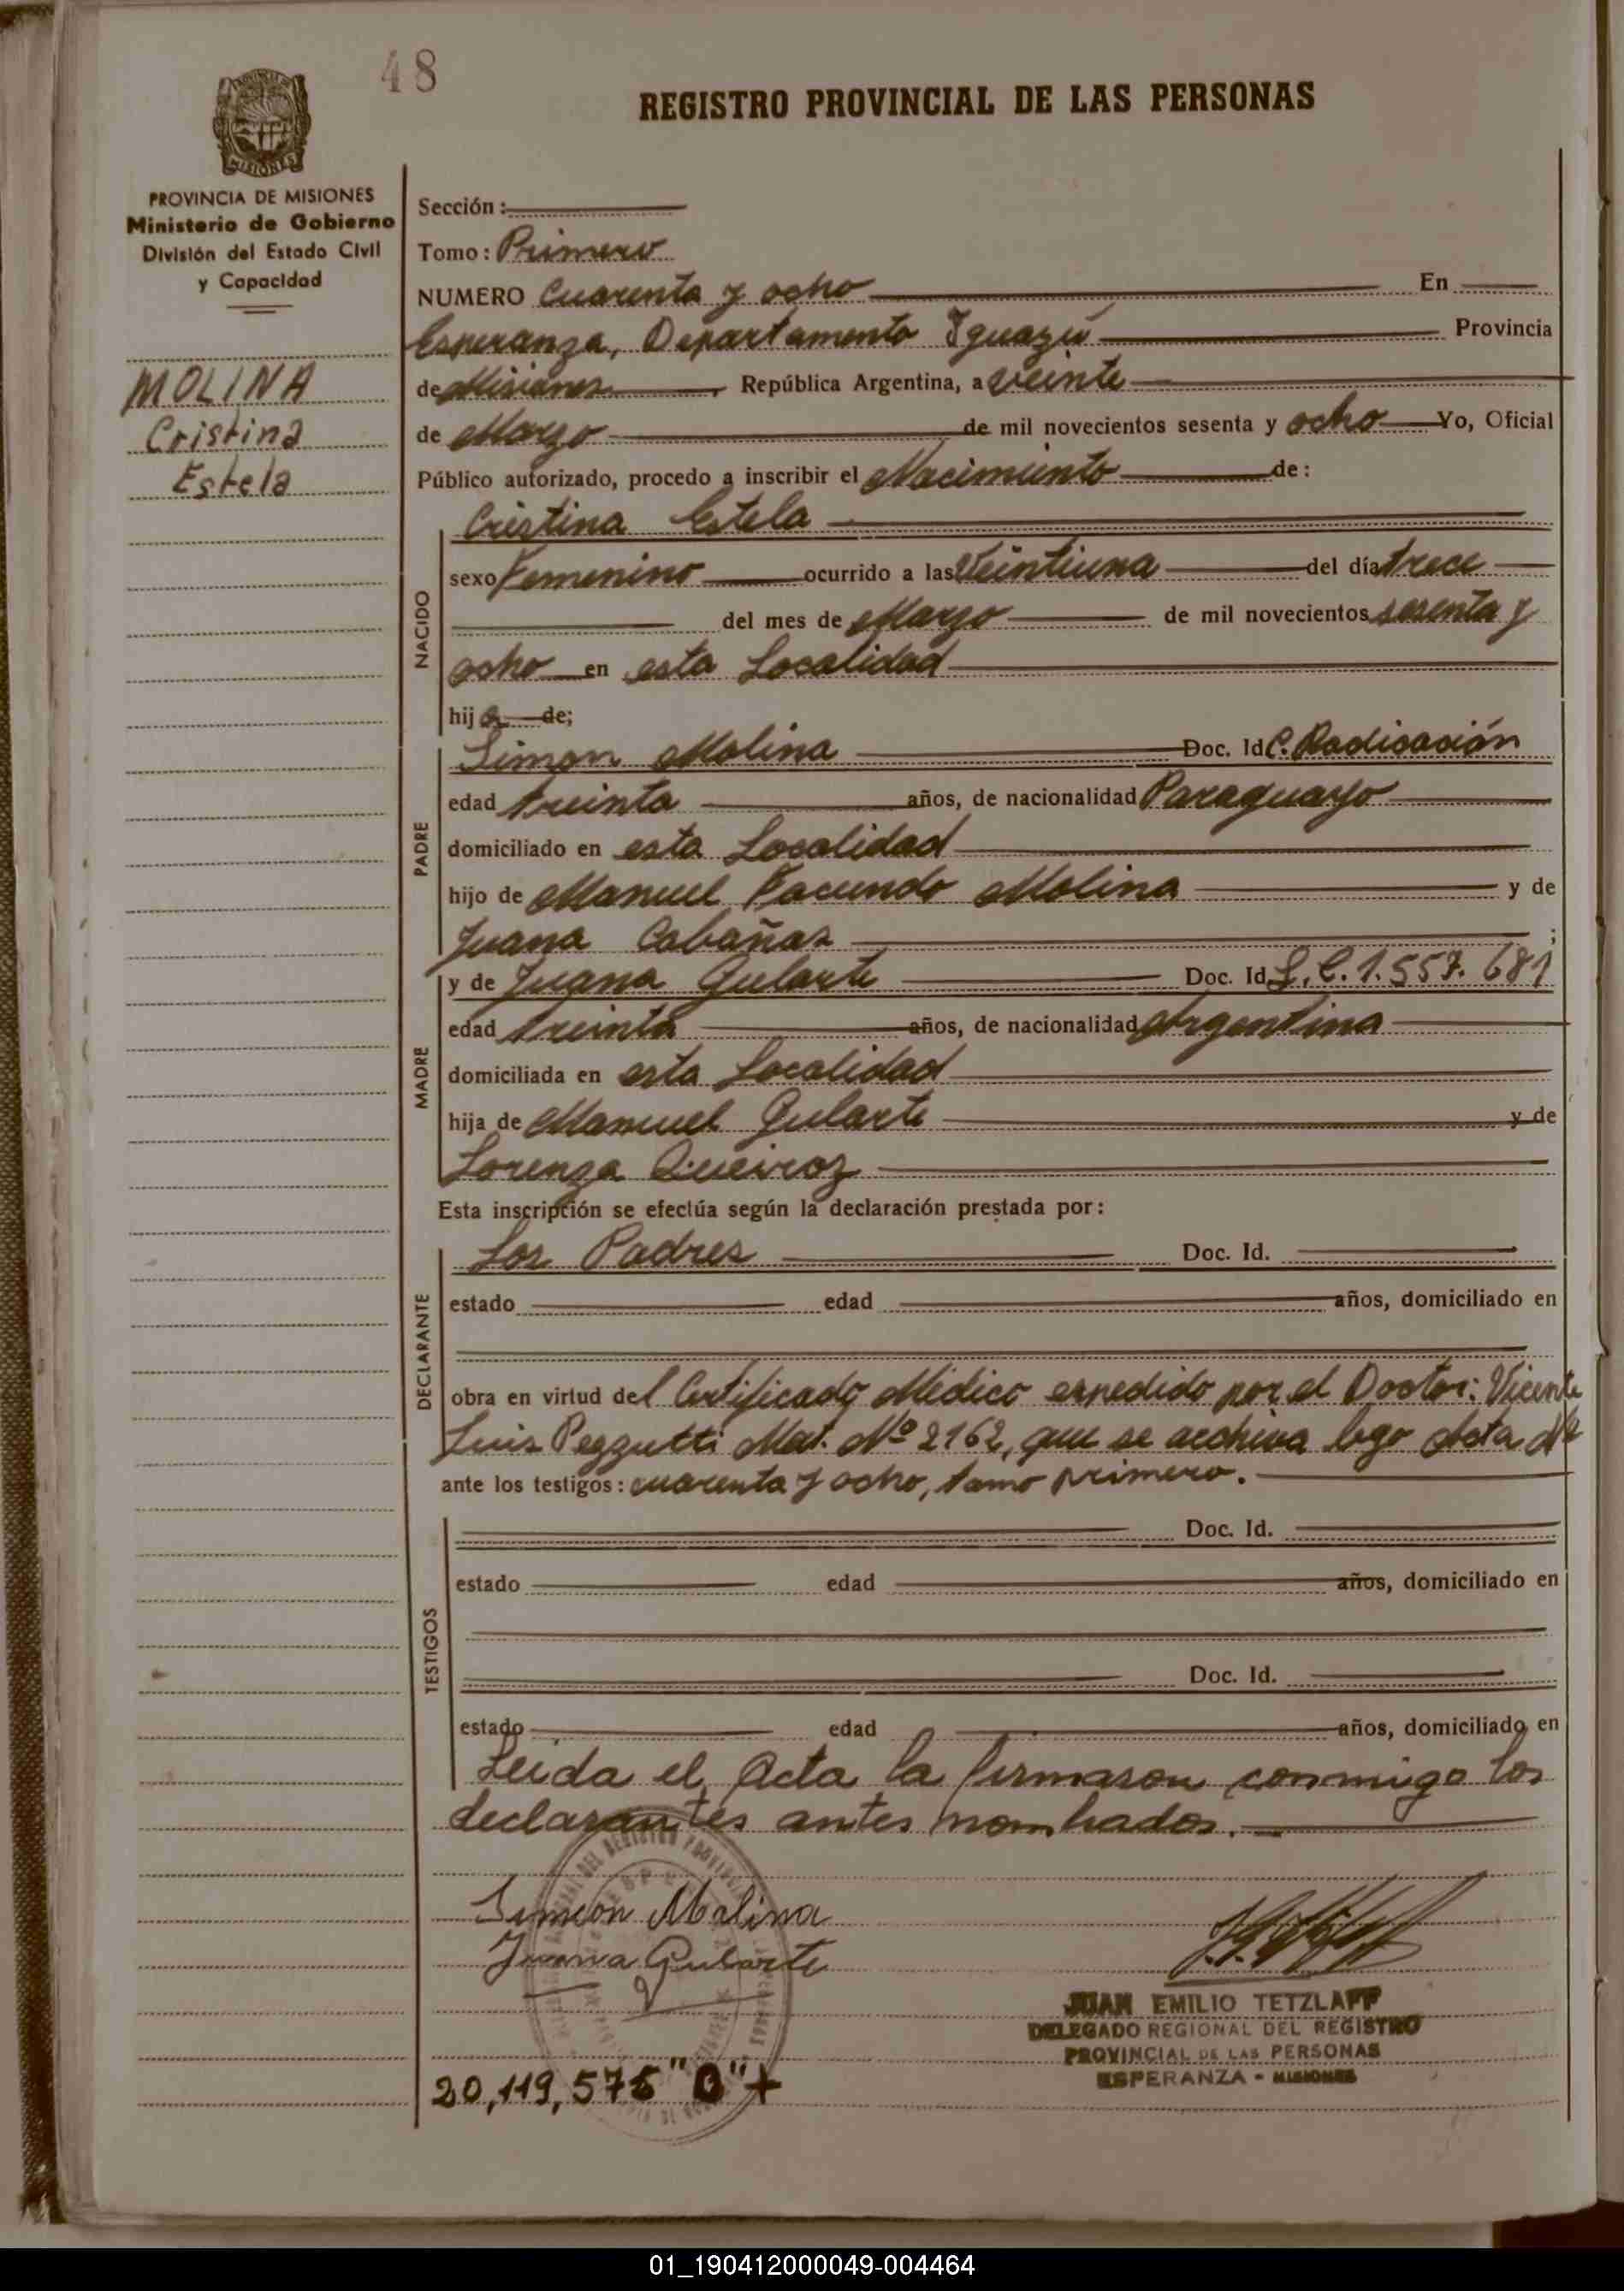 48
REGISTRO PROVINCIAL DE LAS PERSONAS
MISIONES
PROVINCIA DE MISIONES
Ministerio de Gobierno
División del Estado Civil
y Capacidad
MOLINA
Cristina
Estela
Sección:
Tomo: Primero
NUMERO Cuarenta y ocho En
Esperanza, Departamento Iguazú Provincia
de Misiones, República Argentina, a veinte
de Marzo de mil novecientos sesenta y ocho Yo, Oficial
Público autorizado, procedo a inscribir el Nacimiento de:
NACIDO
Cristina Estela
sexo Femenino ocurrido a las Veintiuna del día trece
del mes de Marzo de mil novecientos sesenta y
ocho en esta Localidad
hija de;
PADRE
Simon Molina Doc. Id C. Radicación
edad treinta años, de nacionalidad Paraguayo
domiciliado en esta Localidad
hijo de Manuel Facundo Molina y de
Juana Cabañas ;
MADRE
y de Juana Gularte Doc. Id L.C. 1.557.681
edad treinta años, de nacionalidad Argentina
domiciliada en esta Localidad
hija de Manuel Gularte y de
Lorenza Queiroz
Esta inscripción se efectúa según la declaración prestada por:
DECLARANTE
Los Padres Doc. Id.
estado edad años, domiciliado en
obra en virtud del Certificado Médico expedido por el Doctor: Vicente
Luis Pezzutti Mat. Nº 2162, que se archiva bajo Acta Nº
ante los testigos: cuarenta y ocho, tomo primero.
TESTIGOS
Doc. Id.
estado edad años, domiciliado en
Doc. Id.
estado edad años, domiciliado en
Leida el Acta la firmaron conmigo los
declarantes antes nombrados.
Simeon Molina
Juana Gularte
JUAN EMILIO TETZLAFF
DELEGADO REGIONAL DEL REGISTRO
PROVINCIAL DE LAS PERSONAS
ESPERANZA - MISIONES
20,119,576 "O" +
01_190412000049-004464